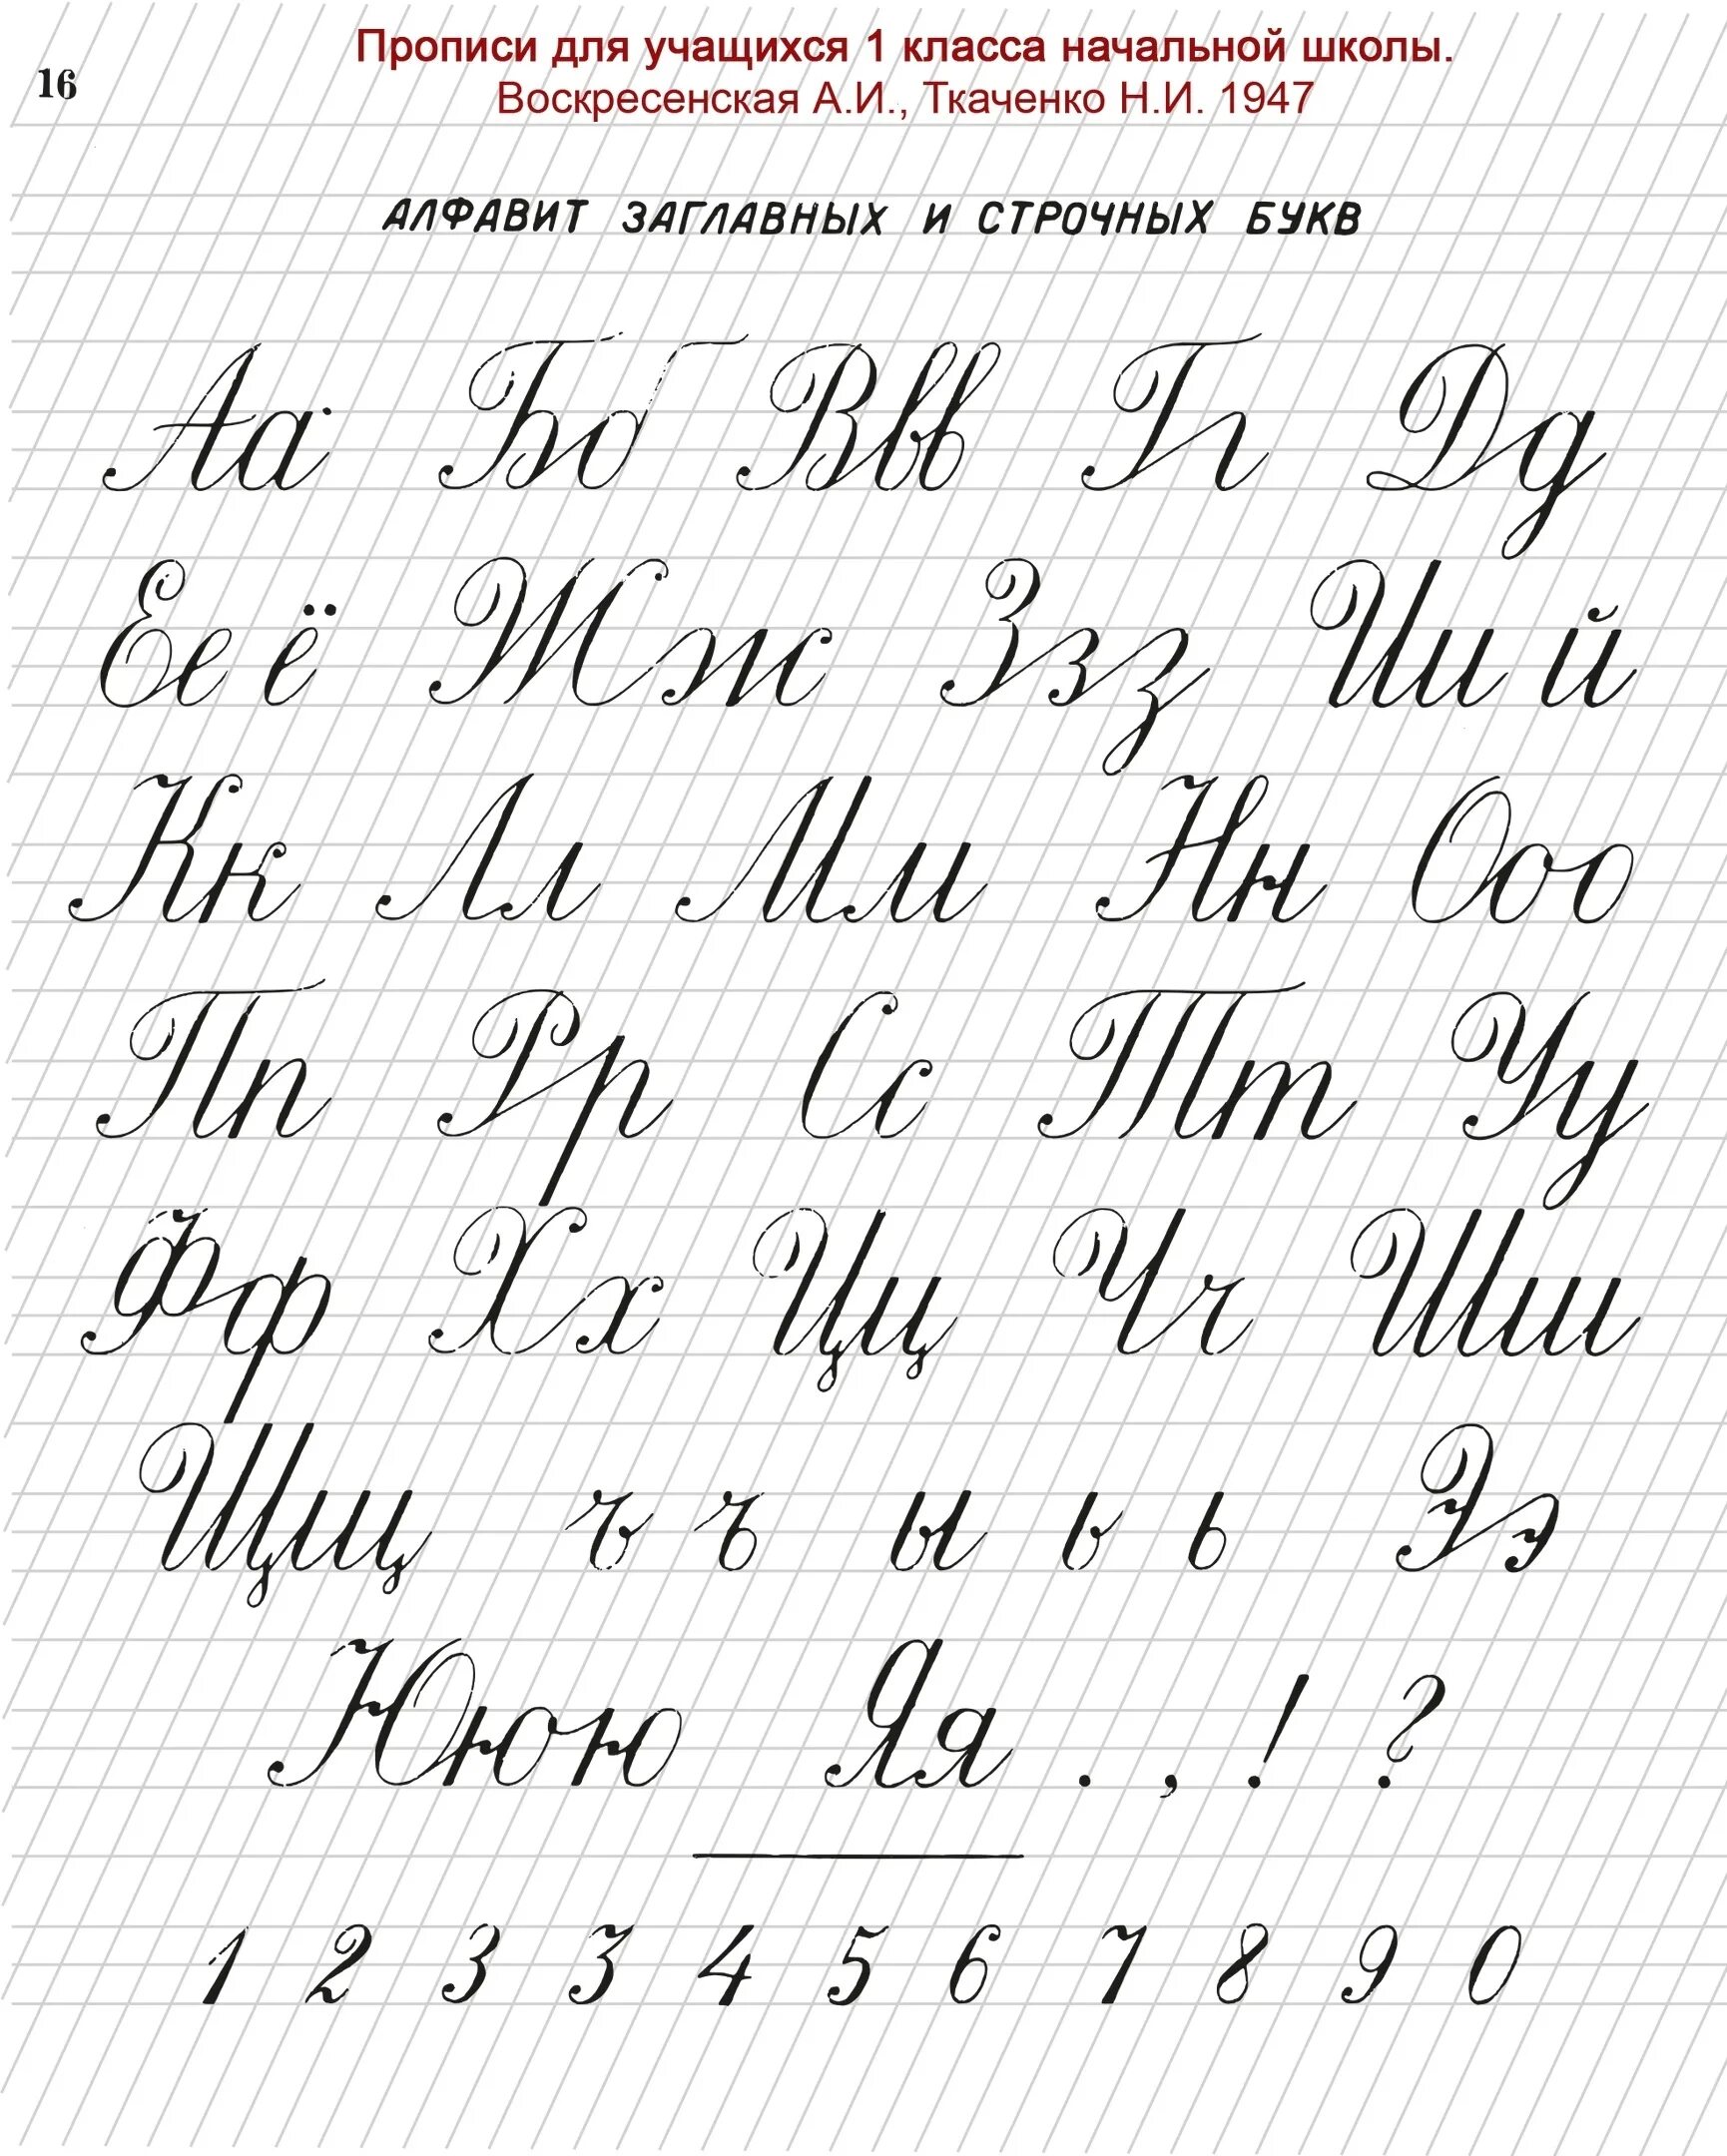 Прописи для учащихся 1 класса начальной школы.
Воскресенская А.И., Ткаченко Н.И. 1947
16
АЛФАВИТ ЗАГЛАВНЫХ И СТРОЧНЫХ БУКВ
Аа Бб Ввв Гг Дд
Ее ё Жж Ззз Ии й
Кк Лл Мм Нн Ооо
Пп Рр Сс Тт Уу
Фф Хх Цц Чч Шш
Щщ ъ ъ ы ь ь Ээ
Ююю Яя . , ! ?
1 2 3 3 4 5 6 7 8 9 0